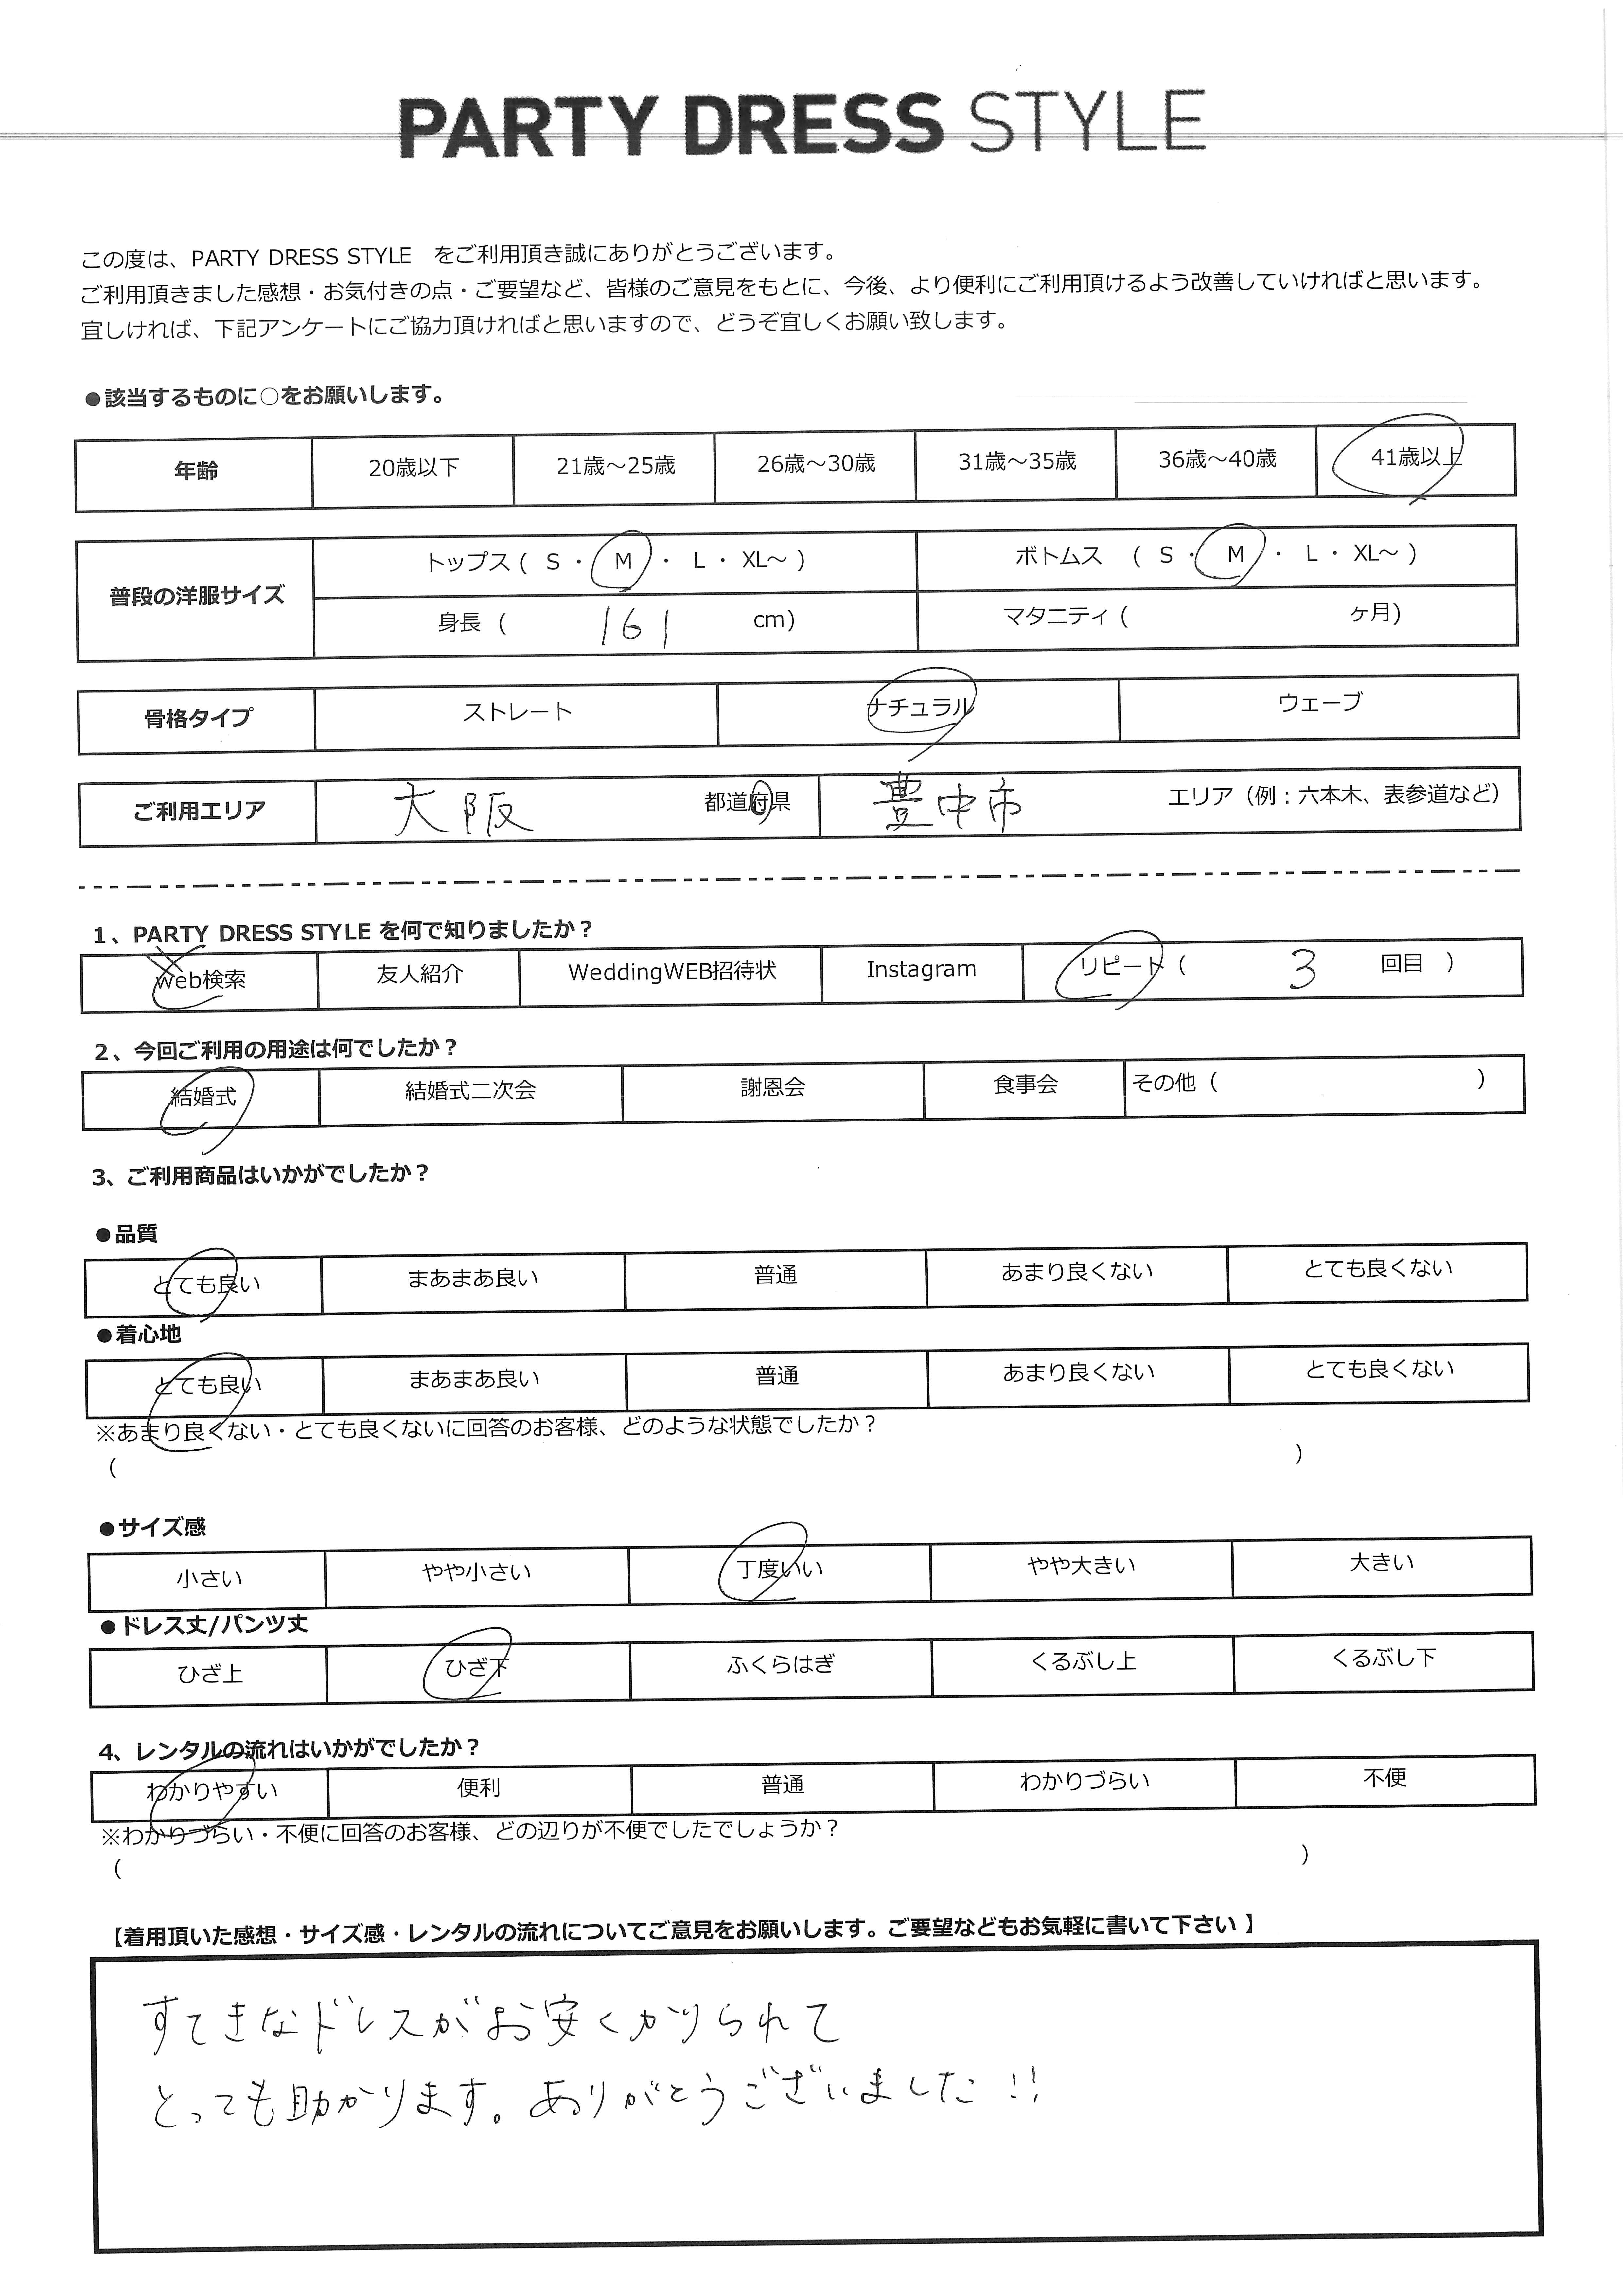 PARTY DRESS STYLE
この度は、PARTY DRESS STYLE をご利用頂き誠にありがとうございます。
ご利用頂きました感想・お気付きの点・ご要望など、皆様のご意見をもとに、今後、より便利にご利用頂けるよう改善していければと思います。
宜しければ、下記アンケートにご協力頂ければと思いますので、どうぞ宜しくお願い致します。
●該当するものに○をお願いします。
年齢 20歳以下 21歳～25歳 26歳～30歳 31歳～35歳 36歳～40歳 41歳以上
普段の洋服サイズ トップス ( S ・ M ・ L ・ XL～ ) ボトムス ( S ・ M ・ L ・ XL～ )
身長 ( 161 cm) マタニティ ( ヶ月)
骨格タイプ ストレート ナチュラル ウェーブ
ご利用エリア 大阪 都道府県 豊中市 エリア（例：六本木、表参道など）
1、PARTY DRESS STYLE を何で知りましたか？
web検索 友人紹介 WeddingWEB招待状 Instagram リピート ( 3 回目 )
2、今回ご利用の用途は何でしたか？
結婚式 結婚式二次会 謝恩会 食事会 その他 ( )
3、ご利用商品はいかがでしたか？
●品質
とても良い まあまあ良い 普通 あまり良くない とても良くない
●着心地
とても良い まあまあ良い 普通 あまり良くない とても良くない
※あまり良くない・とても良くないに回答のお客様、どのような状態でしたか？
( )
●サイズ感
小さい やや小さい 丁度いい やや大きい 大きい
●ドレス丈/パンツ丈
ひざ上 ひざ下 ふくらはぎ くるぶし上 くるぶし下
4、レンタルの流れはいかがでしたか？
わかりやすい 便利 普通 わかりづらい 不便
※わかりづらい・不便に回答のお客様、どの辺りが不便でしたでしょうか？
( )
【着用頂いた感想・サイズ感・レンタルの流れについてご意見をお願いします。ご要望などもお気軽に書いて下さい 】
すてきなドレスがお安くかりられて
とっても助かります。ありがとうございました!!